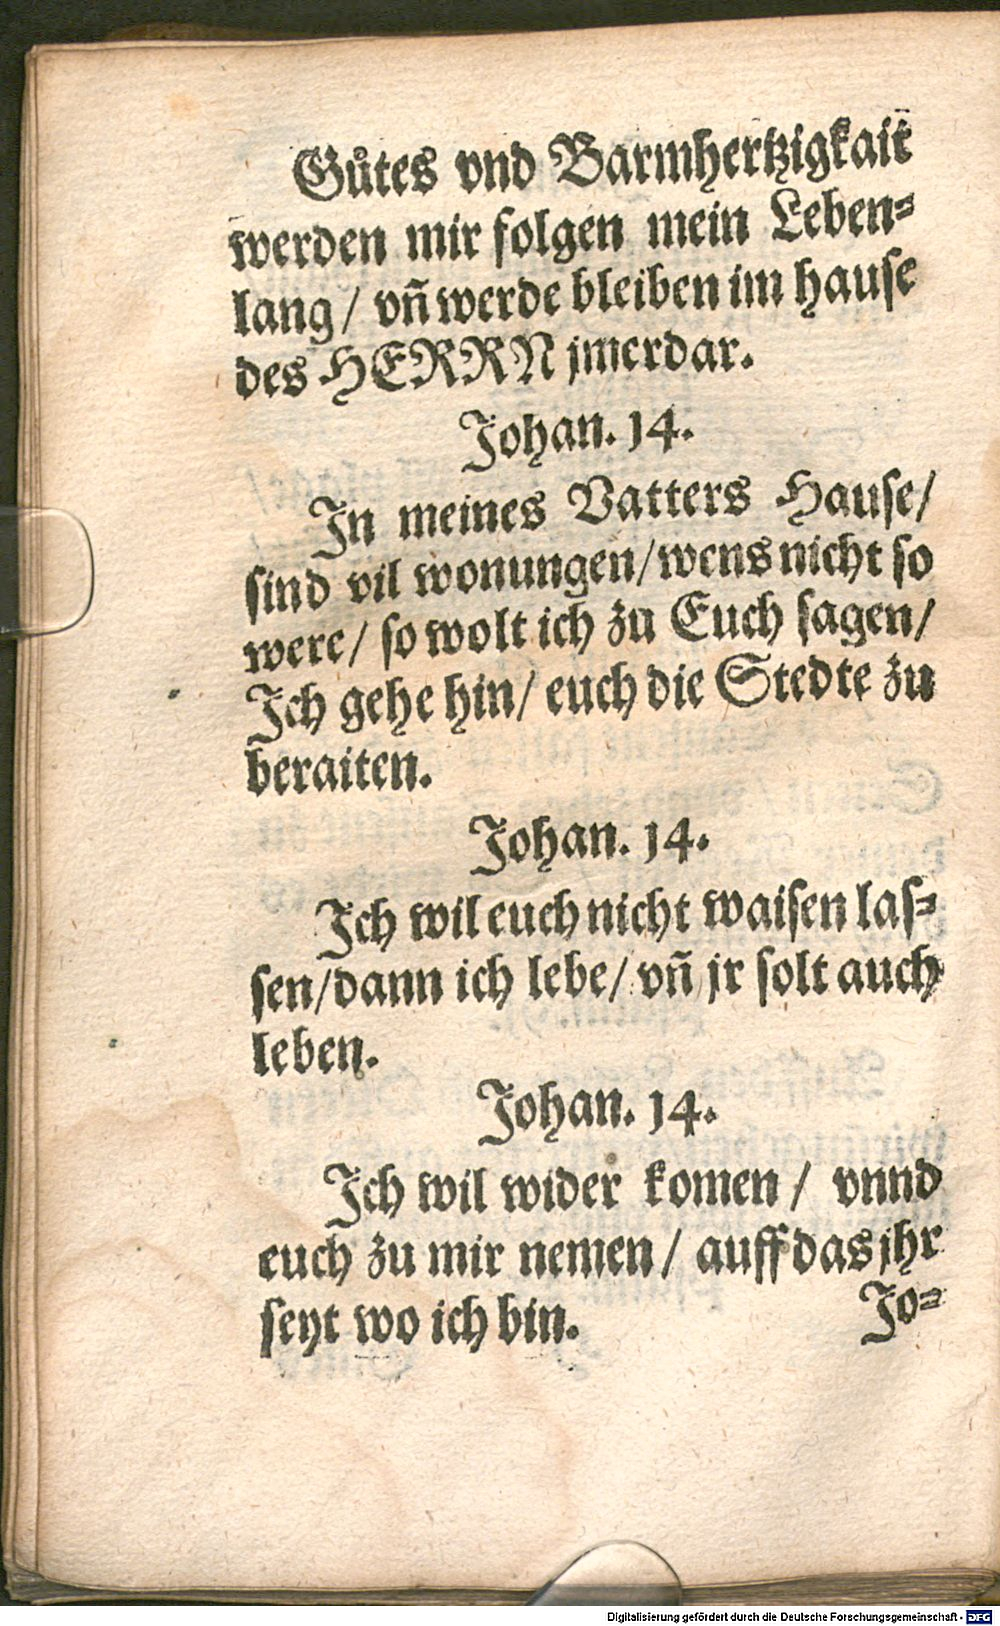 Gůtes vnd Barmhertzigkait
werden mir folgen mein Leben-
lang / vñ werde bleiben im hause
des HERRN jmerdar.
Johan. 14.
In meines Vatters Hause/
sind vil wonungen/wens nicht so
were/ so wolt ich zu Euch sagen/
Ich gehe hin/ euch die Stedte zu
beraiten.
Johan. 14.
Ich wil euch nicht waisen las-
sen/dann ich lebe/ vñ jr solt auch
leben.
Johan. 14.
Ich wil wider komen / vnnd
euch zu mir nemen / auff das jhr
seyt wo ich bin.
Jo-
Digitalisierung gefördert durch die Deutsche Forschungsgemeinschaft - DFG